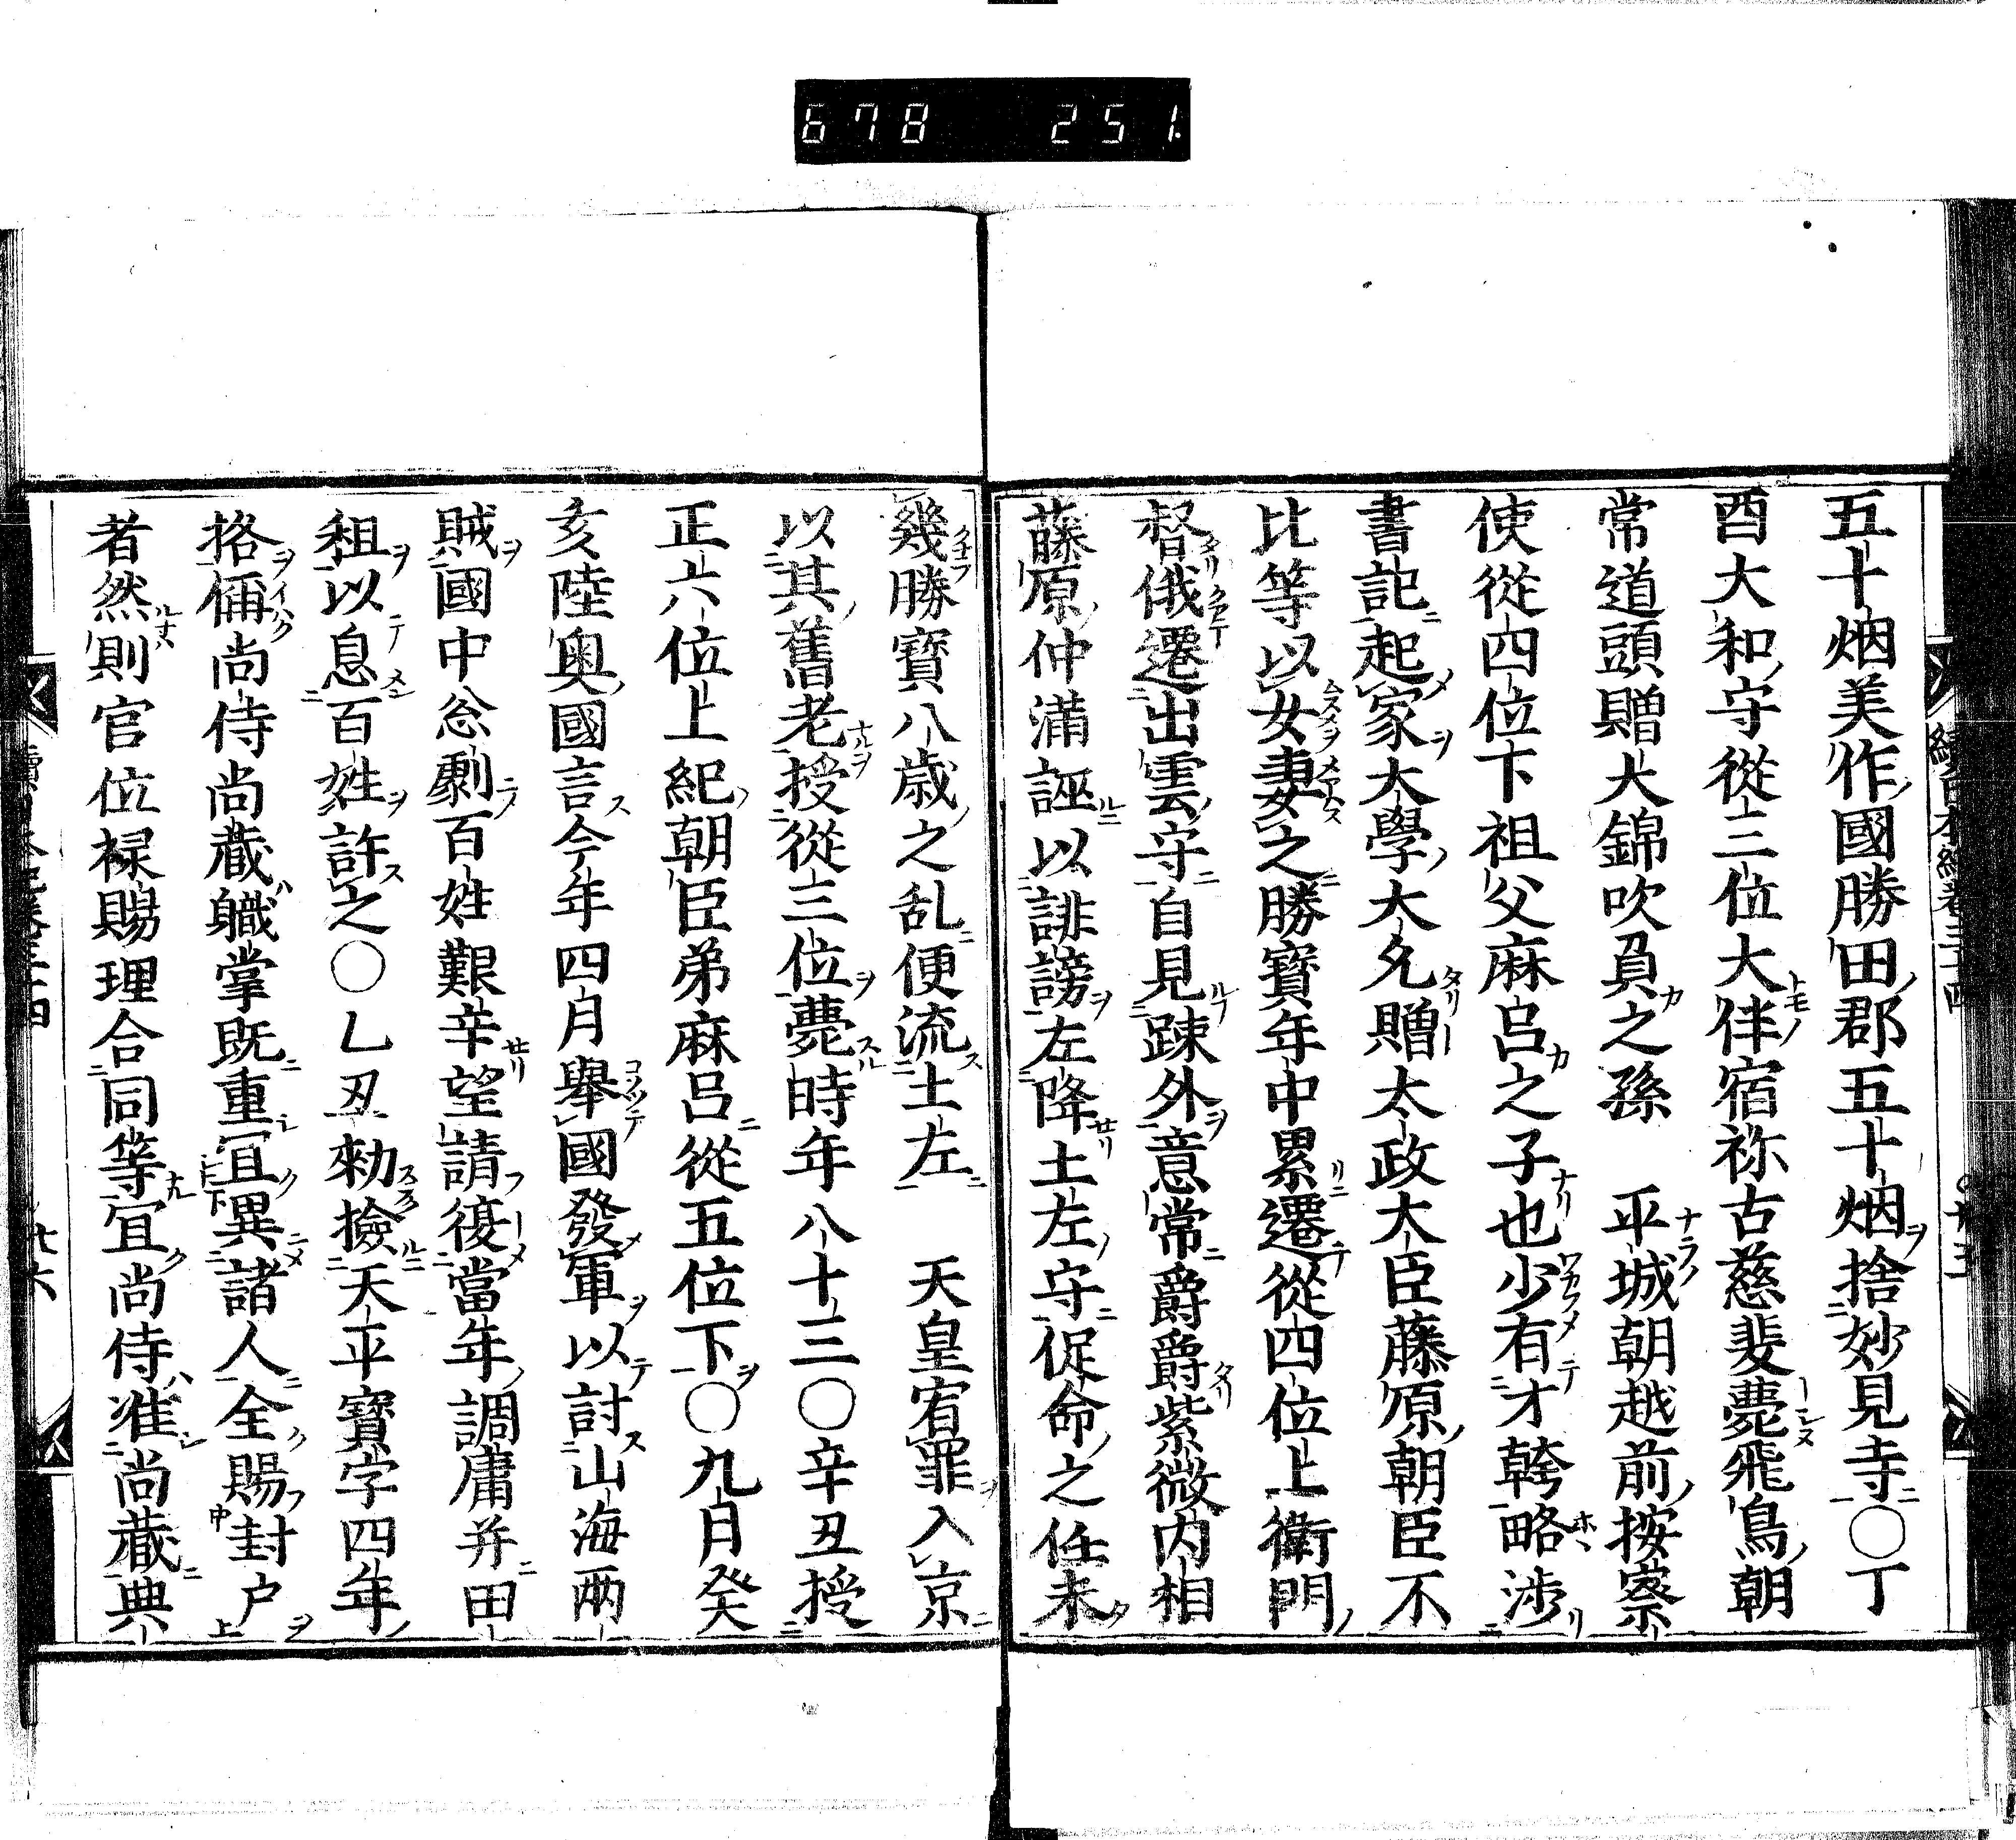 678 251.
五十烟美作國勝田郡五十烟捨妙見寺○丁
酉大和守從三位大伴宿祢古慈斐薨飛鳥朝
常道頭贈大錦吹負之孫　平城朝越前按察
使從四位下祖父麻呂之子也少有才幹略渉
書記起家大學大允贈太政大臣藤原朝臣不
比等以女妻之勝寶年中累遷從四位上衛門
督俄遷出雲守自見疎外意常爵爵紫微内相
藤原仲滿誣以誹謗左降土左守促命之任未
幾勝寶八歳之乱便流土左　天皇宥罪入京
以其舊老授從三位薨時年八十三○辛丑授
正六位上紀朝臣弟麻呂從五位下○九月癸
亥陸奥國言今年四月舉國發軍以討山海兩
賊國中忩劇百姓艱辛望請復當年調庸并田
租以息百姓許之○乙丑勑撿天平寶字四年
挌偁尚侍尚藏軄掌既重宜異諸人全賜封戸
者然則官位禄賜理合同等宜尚侍准尚藏典